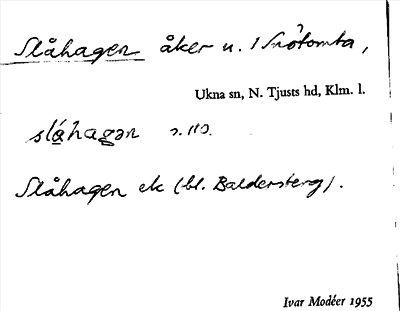 Slåhagen åker u. 1 Snötomta,
Ukna sn, N. Tjusts hd, Klm. l.
slåhagən
Slåhagen ek (bl. Baldersberg).
Ivar Modéer 1955